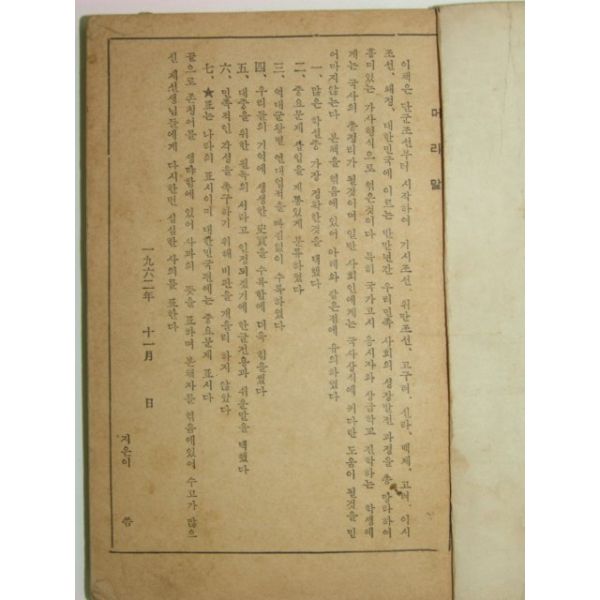 머리말
이책은 단군조선부터 시작하여 기시조선, 위만조선, 고구려, 신라, 백제, 고려, 이시
조선, 왜정, 대한민국에 이르는 반만년간 우리민족 사회의 성장발전 과정을 총 망라하여
흥미있는 가사형식으로 엮은것이다 특히 국가고시 응시자와 상급학교 진학하는 학생에
게는 국사의 총정리가 될것이며 일반 사회인에게는 국사상식에 커다란 도움이 될것을 믿
어마지않는다 본책을 엮음에 있어 아래와 같은점에 유의하였다
一、 많은 학설중 가장 정확한것을 택했다
二、 중요문제 삽입을 계통있게 분류하였다
三、 역대군왕편 연대업적을 빠짐없이 수록하였다
四、 우리들의 기억에 생생한 史實을 수록함에 더욱 힘을썼다
五、 대중을 위한 필독의 서라고 인정되겠기에 한글전용과 쉬운말을 택했다
六、 민족적인 각성을 촉구하기 위해 비판을 개을리 하지 않았다
七、 ★표는 나라의 표시이며 대한민국편에는 중요문제 표시다
끝으로 존칭어를 생략함에 있어 사과의 뜻을 표하며 본책자를 엮음에있어 수고가 많으
신 제선생님들에게 다시한번 심심한 사의를 표한다
一九六二年 十一月 日
지은이 씀